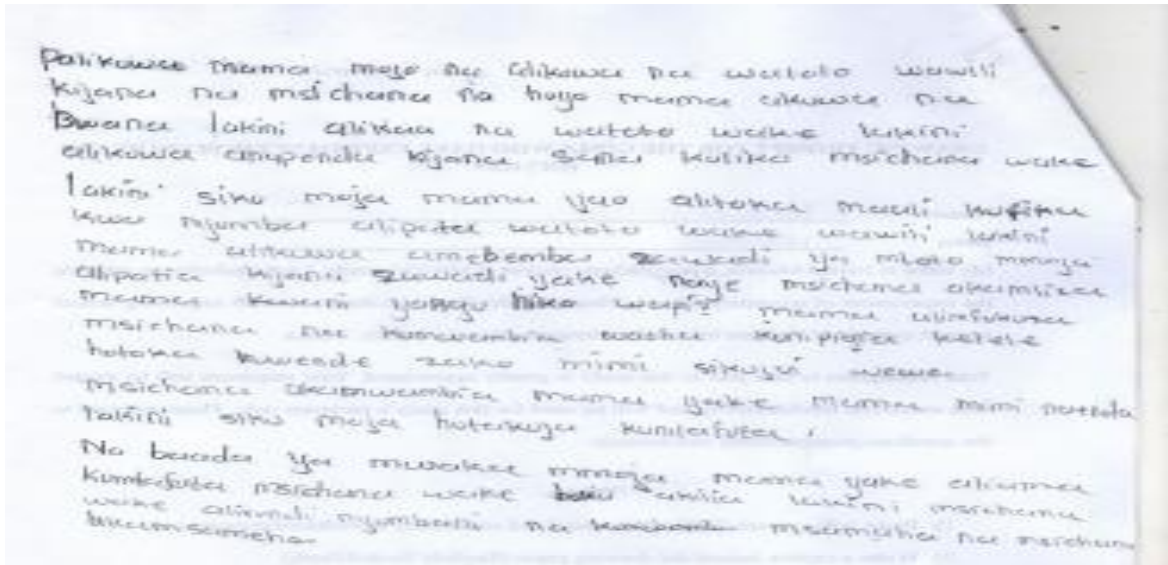 Palikuwa mama mojo na alikuwa na watoto wawili
kijana na msichana na huyo mama akuwa na
Bwana lakini alikaa na watoto wake lakini
alikuwa anapenda kijana sana kuliko msichana wake
lakini siku moja mama yao alitoka mauli kufika
kwa nyumba alipata watoto wake wawili lakini
mama alikuwa amebemba zawadi ya mtoto mmoja
alipatia kijana zawadi yake naye msichana akamuiza
mama kwani yangu iko wapi mama alimfukuza
msichana na kumwambia wacha kunipigia kelele
hotoka kwende zako mimi sikujui wewe
msichana akamwambia mama yake mama mimi natoka
lakini siku moja hutakuja kunitafuta.
Na baada ya mwaka mmoja mama yake alikuja
kumtafuta msichana wake akilia lakini msichana
wake alirudi nyumbani na msamaha na msichana
akamsameha.